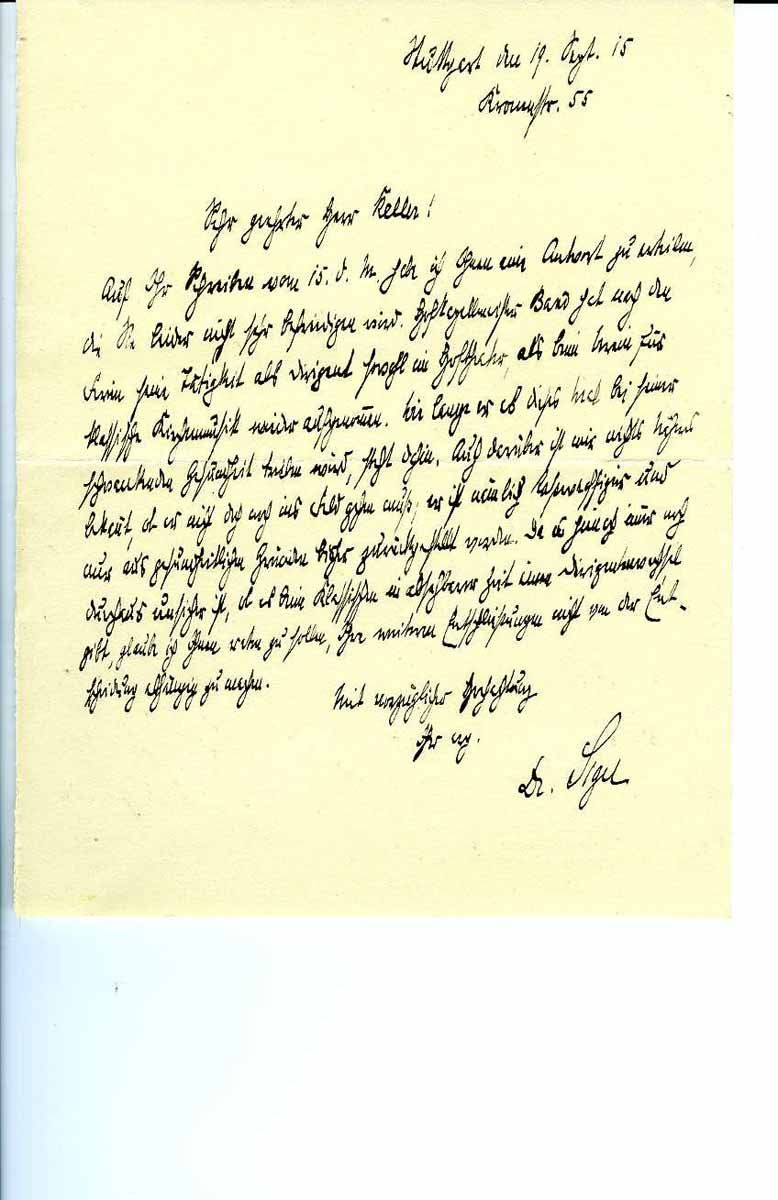 Stuttgart den 19. Sept. 15
Kronenstr. 55
Sehr geehrter Herr Keller!
Auf Ihr Schreiben vom 15. d. M. habe ich Ihnen eine Antwort zu erteilen,
die Sie leider nicht sehr befriedigen wird. Hofkapellmeister Band hat nach den
Ferien seine Tätigkeit als Dirigent sowohl im Hoftheater, als beim Verein für
klassische Kirchenmusik wieder aufgenommen. Wie lange er es dieses bei seiner
schwankenden Gesundheit treiben wird, steht dahin. Auch darüber ist mir nichts
bekannt, ob er nicht doch noch ins Feld gehen muß; er ist nämlich und
nur aus gesundheitlichen Gründen bisher zurückgestellt worden. Da es immer noch
durchaus unsicher ist, ob es beim Klassischen in absehbarer Zeit einen Dirigentenwechsel
gibt, glaube ich Ihnen raten zu sollen, Ihre weiteren Entschließungen nicht von der Ent-
scheidung abhängig zu machen.
Mit vorzüglicher Hochachtung
Ihr erg.
Dr. Sigel